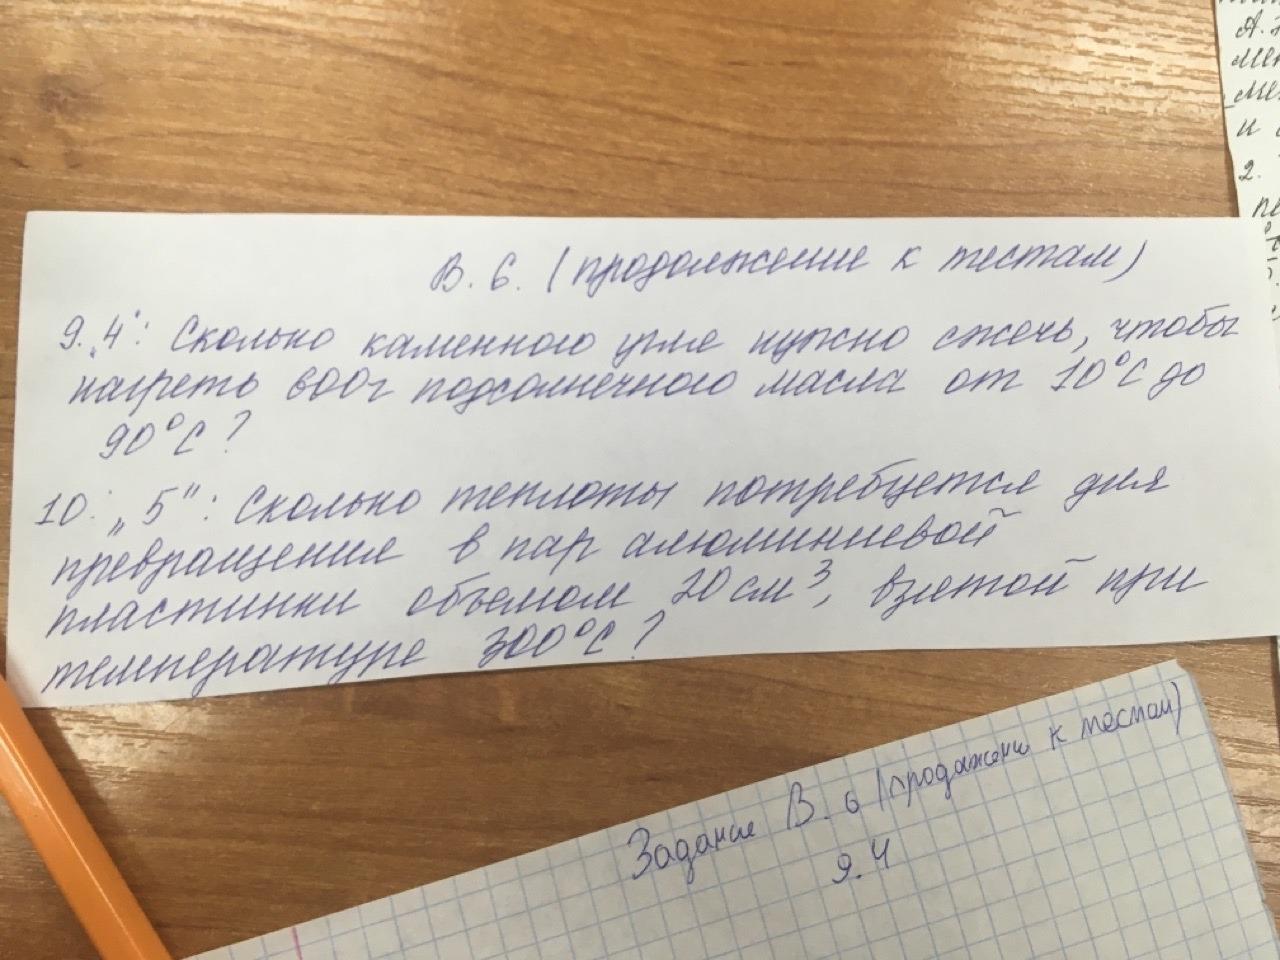 В. 6. (продолжение к тестам)
9. „4": Сколько каменного угля нужно сжечь, чтобы
нагреть 800г подсолнечного масла от 10°С до
90°С?
10. „5": Сколько теплоты потребуется для
превращения в пар алюминиевой
пластинки объемом 20 см³, взятой при
температуре 300°С?
Задание В. 6 (продажени к тестам)
9.4
А.
и
2.